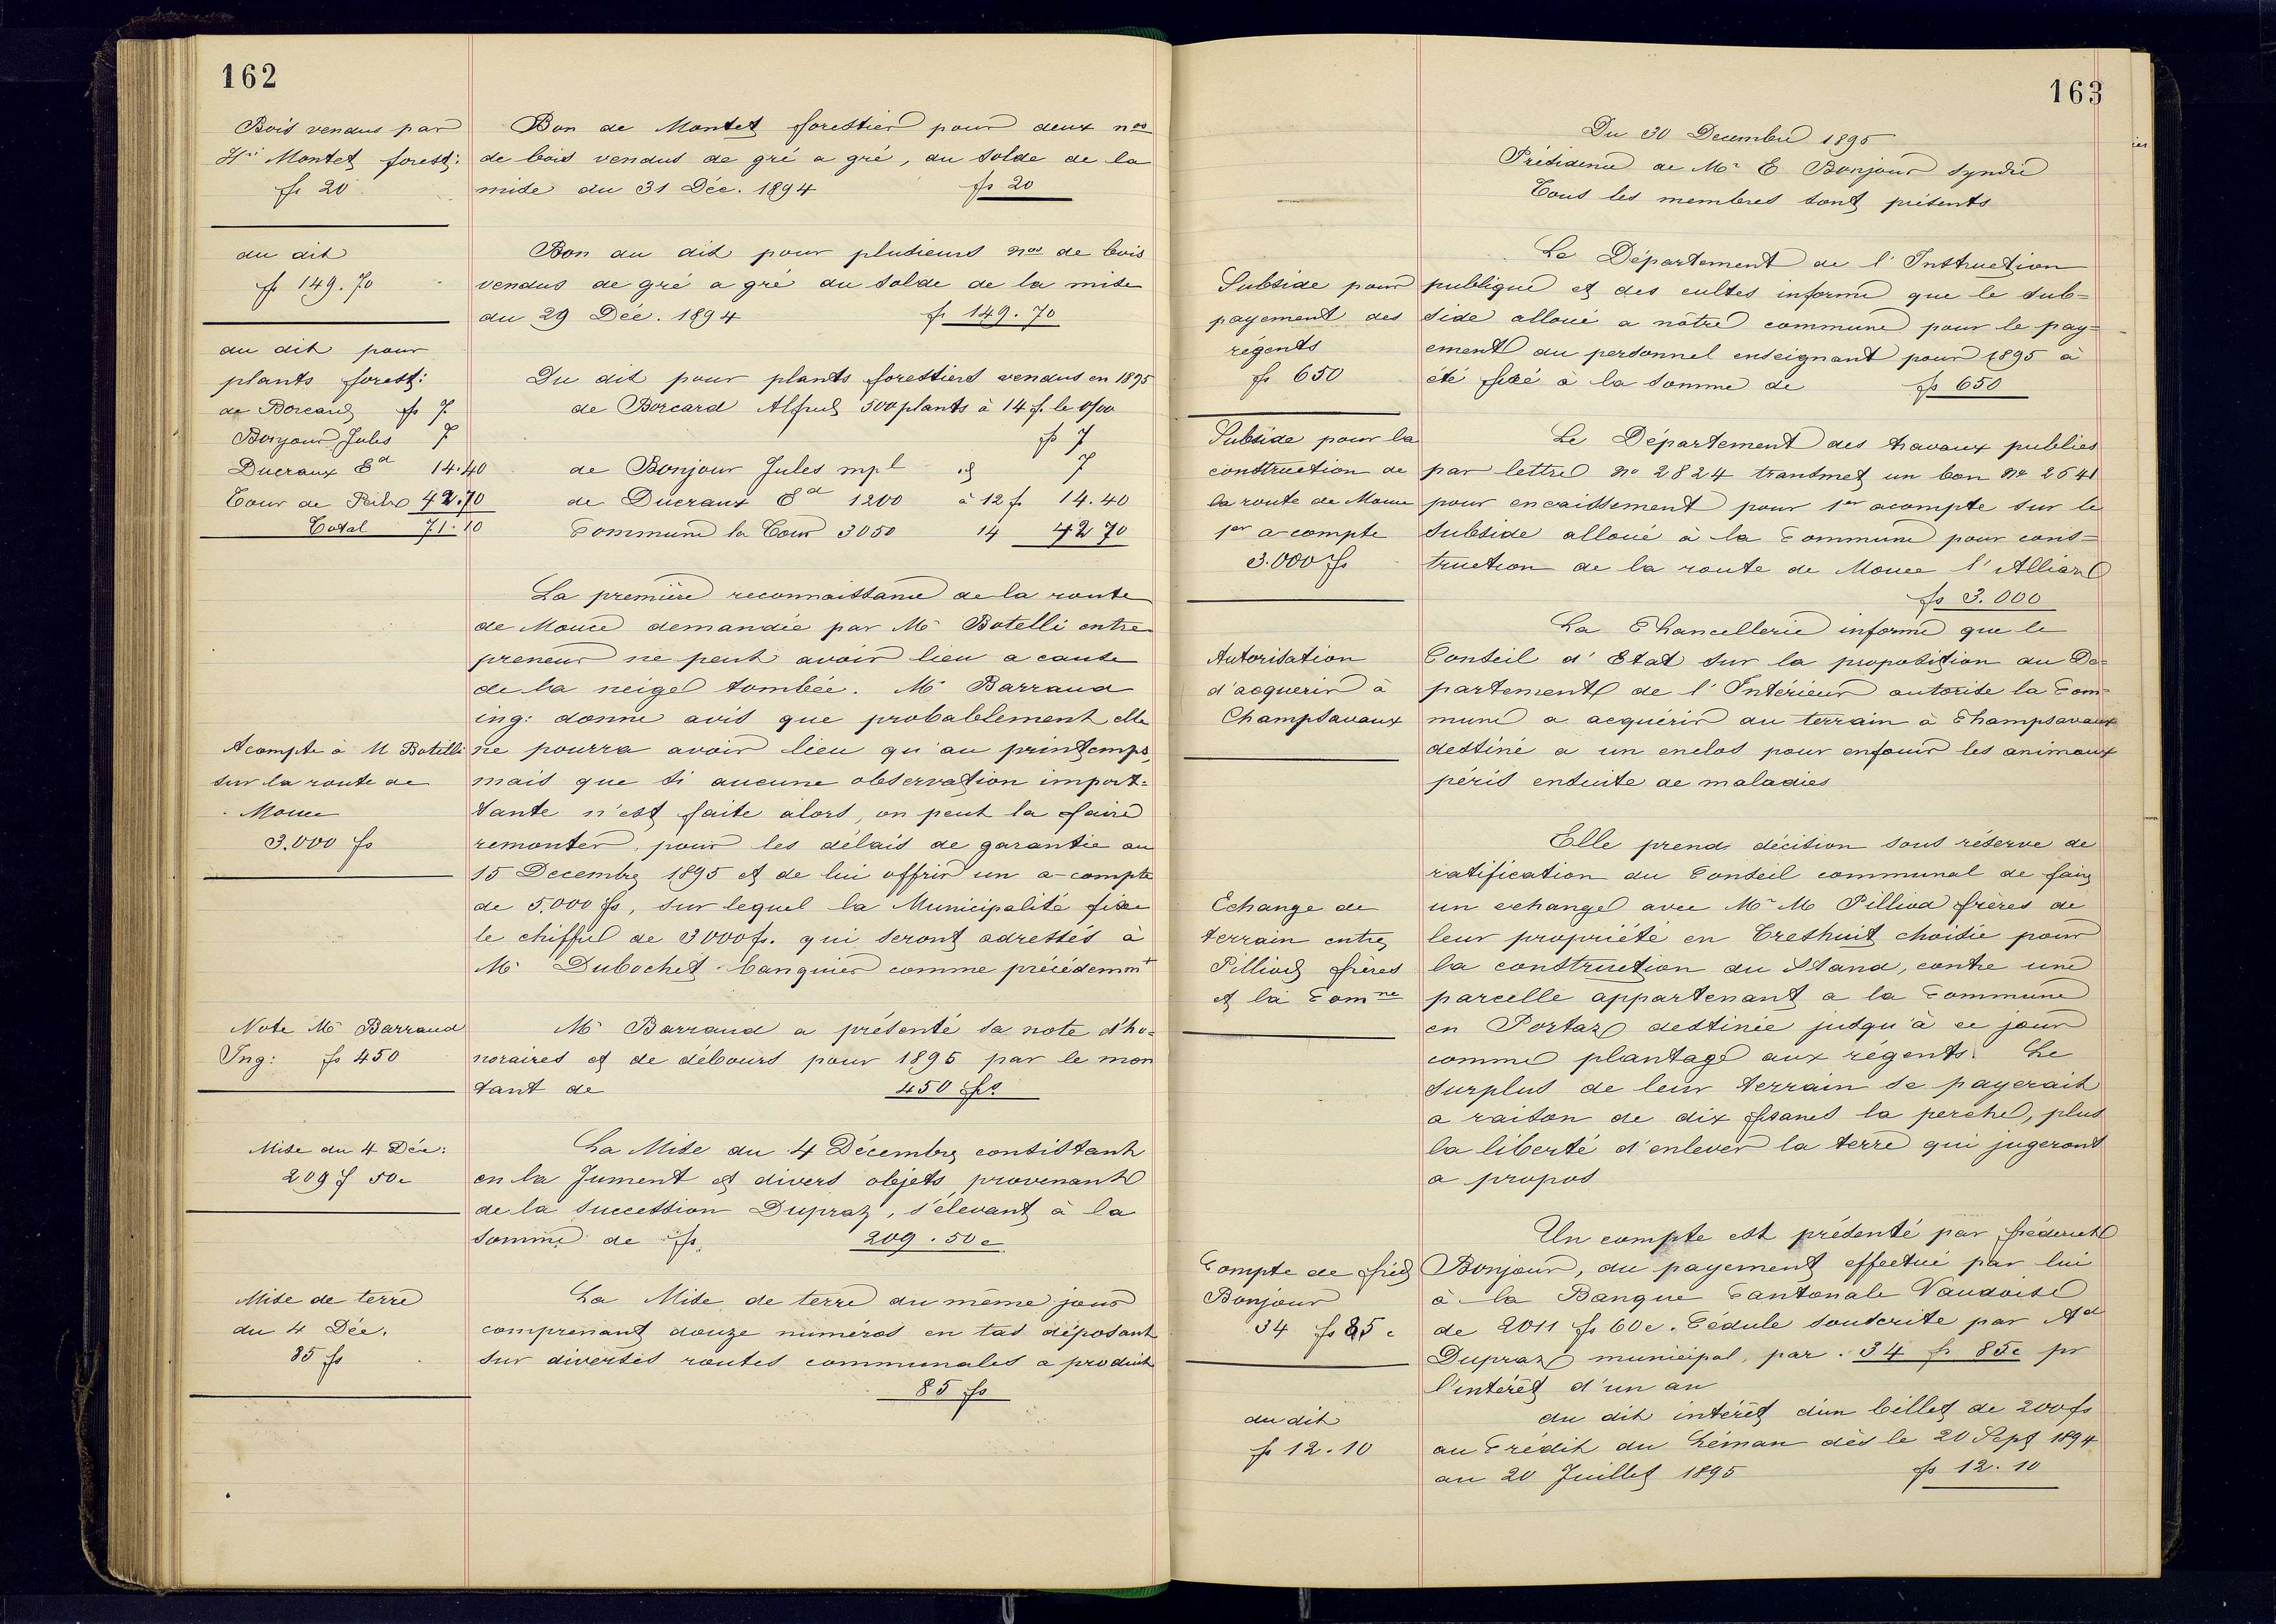 162
Bois vendus par
Hri Montet forest:
fr 20
Bon de Montet forestier pour deux nos
de bois vendus de gré a gré, du solde de la
mise du 31 Déc. 1894 fr 20
du dit
fr 149.70
Bon du dit pour plusieurs nos de bois
vendus de gré a gré du solde de la mise
du 29 Déc. 1894 fr 149.70
du dit pour
plants forest:
de Borcard fr 7
Bonjour Jules 7
Ducraux Ed 14.40
Tour de Peilz 42.70
Total 71.10
Du dit pour plants forestiers vendus en 1895
de Borcard Alfred 500 plants à 14 f. le 0/00
fr 7
de Bonjour Jules mpl id 7
de Ducraux Ed 1200 à 12 f 14.40
Commune la Tour 3050 14 42 70
La première reconnaissance de la route
de Mouce demandée par Mr Botelli entre
preneur ne peut avoir lieu a cause
de la neige tombée. Mr Barraud
ing: donne avis que probablement elle
ne pourra avoir lieu qu'au printemps,
mais que si aucune observation import=
tante n'est faite alors, on peut la faire
remonter, pour les délais de garantie au
15 Decembre 1895 et de lui offrir un a-compte
de 5.000 fs, sur lequel la Municipalité fixe
le chiffre de 3000 fs. qui seront adressés à
Mr Dubochet banquier comme précédemmt
Acompte à M Botelli
sur la route de
Mouce
3.000 fs
Note Mr Barraud
Ing: fs 450
Mr Barraud a présenté sa note d'ho=
noraires et de débours pour 1895 par le mon
tant de 450 frs.
Mise du 4 Déc:
209 f 50c
La Mise du 4 Décembre consistant
en la Jument et divers objets provenant
de la succession Dupraz, s'élevant à la
somme de fr. 209.50c
Mise de terre
du 4 Déc.
85 fs
La Mise de terre du même jour
comprenant douze numéros en tas déposant
sur diverses routes communales a produit
85 fs
163
Du 30 Decembre 1895
Présidence de Mr E Bonjour Syndic
Tous les membres sont présents
Subside pour
payement des
régents
fs 650
Le Département de l'Instruction
publique et des cultes informe que le sub=
side alloué a nôtre commune pour le pay=
ement du personnel enseignant pour 1895 à
été fixé à la somme de fs 650
Subside pour la
construction de
la route de Mouce
1er a-compte
3.000 fs
Le Département des travaux publics
par lettre no 2824 transmet un bon no 2641
pour encaissement pour 1er acompte sur le
subside alloué à la Commune pour cons=
truction de la route de Mouce l'Alliaz
fs 3.000
Autorisation
d'acquerir à
Champsavaux
La Chancellerie informe que le
Conseil d'Etat sur la propobistion du De=
partement de l'Intérieur autorise la Com=
mune a acquérir du terrain à Champsavaux
destiné a un enclos pour enfouir les animaux
péris ensuite de maladies
Echange de
terrain entre
Pilliod frères
et la Comne
Elle prend décision sous réserve de
ratification du Conseil communal de faire
un echange avec Mr M Pilliod frères de
leur propriété en Creshuit choisie pour
la construction du Stand, contre une
parcelle appartenant a la Commune
en Portaz destinée jusqu'à ce jour
comme plantage aux régents. Le
surplus de leur terrain se payerait
a raison de dix francs la perche, plus
la liberté d'enlever la terre qui jugeront
a propos
Compte de fréd
Bonjour
34 fs 85 c
Un compte est présenté par fréderich
Bonjour, du payement effectué par lui
à la Banque Cantonale Vaudoise
de 2011 fs 60c. Cédule souscrite par Ad
Dupraz municipal, par . 34 fr 85c pr
l'intérêt d'un an
du dit
fr 12.10
du dit intérêt d'un billet de 200 fs
au Crédit du Léman dès le 20 Sept 1894
au 20 Juillet 1895 fs 12.10